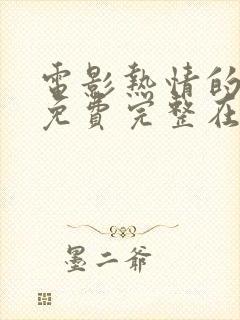 電影熱情的
免費完整在
墨二爺